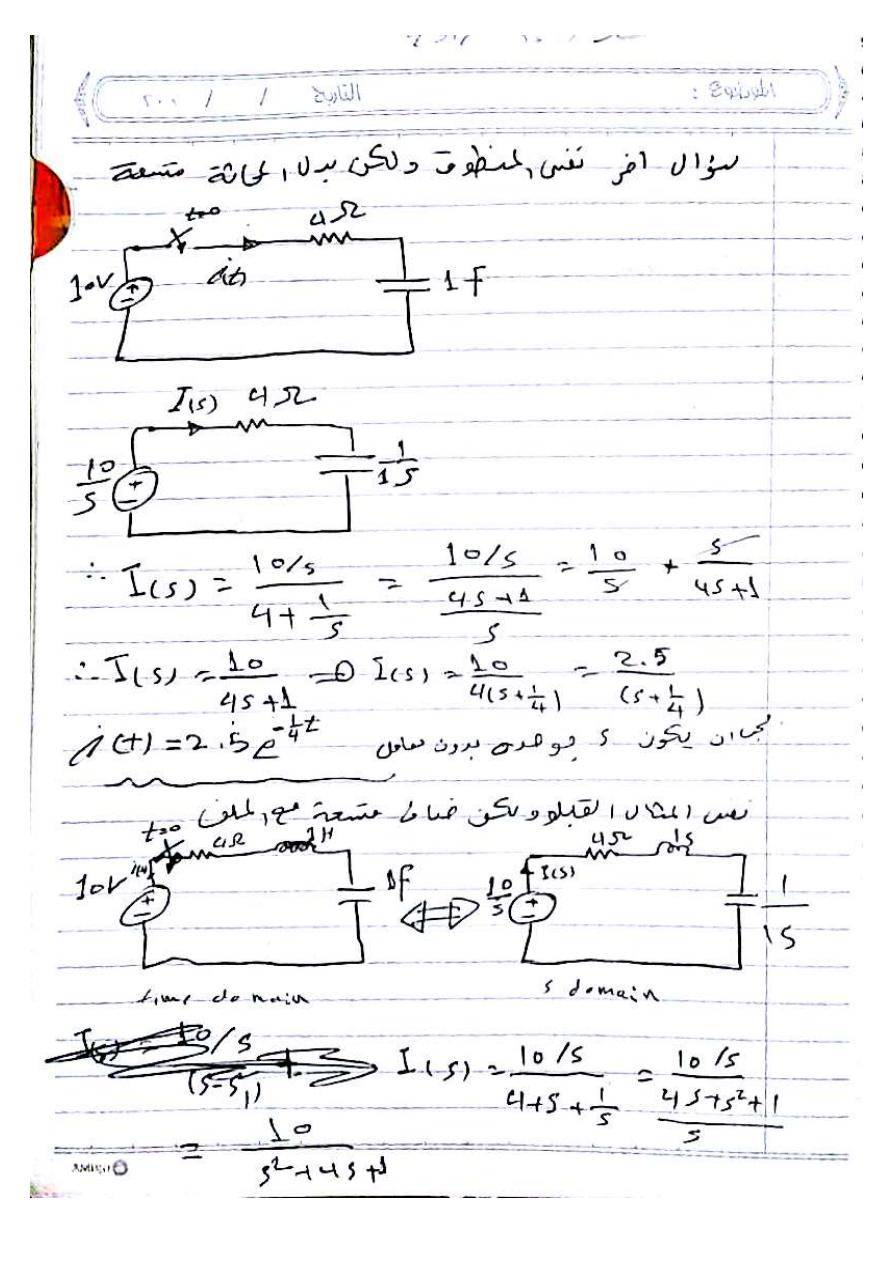 الموضوع :
التاريخ / / ٢٠٠
سؤال اخر نفس المنطوق ولكن بدل المحاثة متسعة
t=0
4Ω
10V
i(t)
1 F
I(s) 4Ω
10/s
1/1S
∴ I(s) = (10/s)/(4 + 1/s) = (10/s)/((4s+1)/s) = 10/s * s/(4s+1)
∴ I(s) = 10/(4s+1) ⇒ I(s) = 10/(4(s+1/4)) = 2.5/(s+1/4)
i(t) = 2.5 e^(-1/4 t) يجب ان يكون s لوحده بدون معامل
نفس المثال القبله ولكن ضاف متسعة مع الملف
t=0 4Ω 1H
10V
1F
4Ω 1s
10/s
I(s)
1/1S
time domain
s domain
I(s) = (10/s)/(4+s+1/s) = (10/s)/((4s+s²+1)/s)
= 10/(s²+4s+1)